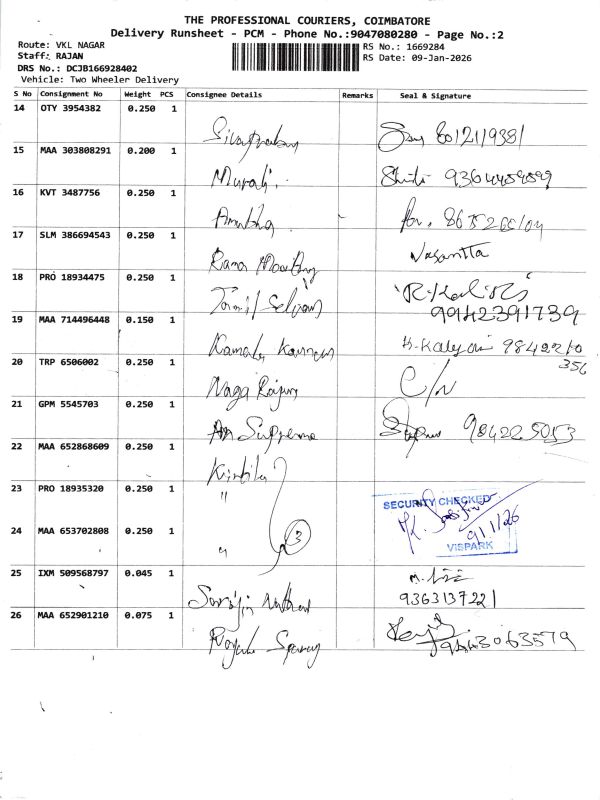 THE PROFESSIONAL COURIERS, COIMBATORE
Delivery Runsheet - PCM - Phone No.:9047080280 - Page No.:2
Route: VKL NAGAR
Staff: RAJAN
DRS No.: DCJB166928402
Vehicle: Two Wheeler Delivery
RS No.: 1669284
RS Date: 09-Jan-2026
S No Consignment No Weight PCS Consignee Details Remarks Seal & Signature
14 OTY 3954382 0.250 1
15 MAA 303808291 0.200 1
Murali
16 KVT 3487756 0.250 1
17 SLM 386694543 0.250 1
Vasantha
18 PRO 18934475 0.250 1
Tamil Selvan
9942391739
19 MAA 714496448 0.150 1
K. Kalyani 9842210
356
20 TRP 6506002 0.250 1
Naga Rajan C/N
21 GPM 5545703 0.250 1
Supreme
22 MAA 652868609 0.250 1
23 PRO 18935320 0.250 1
"
SECURITY CHECKED
9/1/26
VISPARK
24 MAA 653702808 0.250 1
" 3
25 IXM 509568797 0.045 1
9363137221
26 MAA 652901210 0.075 1
9443063579